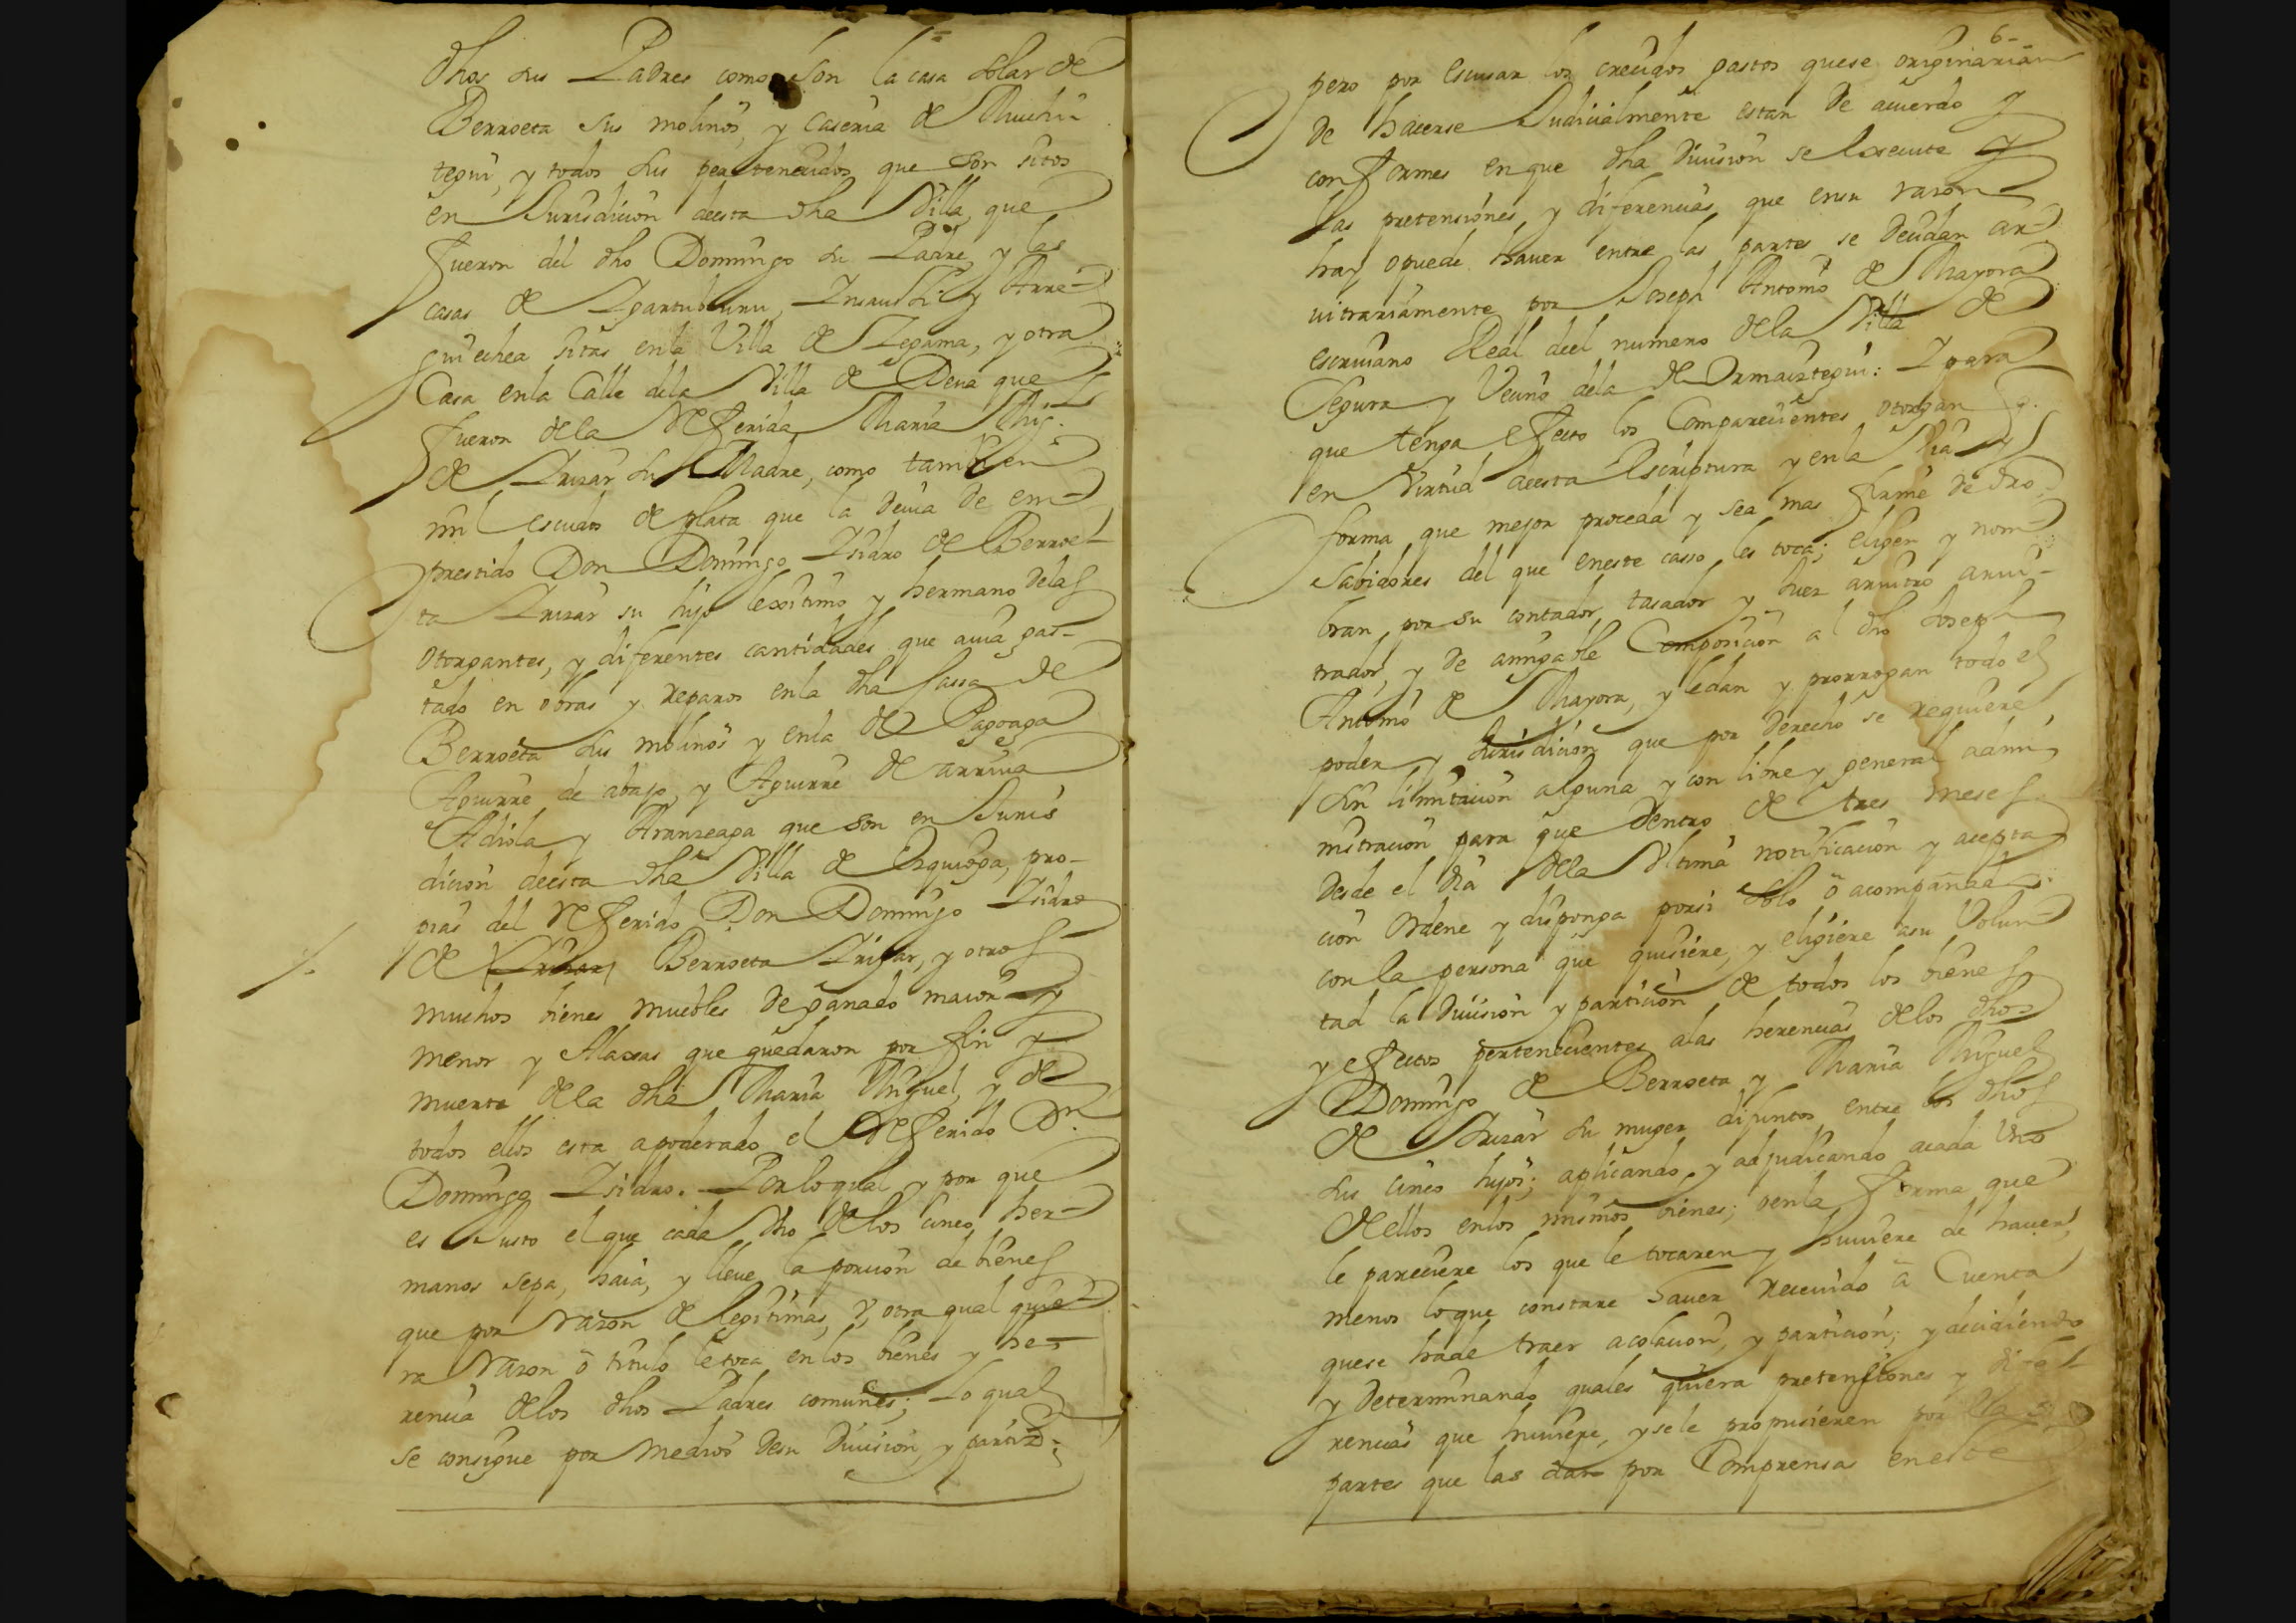 dhos sus Padres como son la casa solar de
Berroeta sus molinos, y caseria de Muchu
tegui, y todos sus pertenecidos que son sitos
en Jurisdicion deesta dha Villa, que
fueron del dho Domingo su Padre, y las
casas de Ygartuburu, Ynsausti y Arre
guiechea sitas enla Villa de Zegama, y otra
Casa enla Calle dela Villa de Deva que
fueron dela Referida Maria Mig.
de Yrizar su Madre, como tambien
mil escudos de plata que la devia de em
prestido Don Domingo Ysidro de Berroe
ta Yrizar su hijo lexitimo y hermano delas
otorgantes, y diferentes cantidades que avia gas-
tado en obras y reparos enla dha cassa de
Berroeta sus molinos y enla de Pagoaga
Aguirre de abajo, y Aguirre de arriva
Adiola y Aranzeaga que son en Juris
dicion deesta dha Villa de Ezquioga, pro-
pias del Referido Don Domingo Ysidro
de Yrizar Berroeta Yrizar, y otros
muchos bienes muebles de ganado maior y
menor y Alaxas que quedaron por fin y
muerte dela dha Maria Miguel, y de
todos ellos esta apoderado el Referido Dn.
Domingo Ysidro. Por lo qual y por que
es Justo el que cada Uno delos cinco her
manos sepa, haia, y lleve la porcion de bienes
que por razon de legitimas, y otra qual quie
ra razon ô titulo le toca enlos bienes y he-
rencia delos dhos Padres comunes; Lo qual
se consigue por medios desu Division, y partizn.
6-
pero por escusar los crecidos gastos quese originarian
de hacerse Judicialmente estan de acuerdo y
conformes enque dha Division se execute y
las pretensiones, y diferencias, que ensu razon
hay, o puede haver entre las partes se decidan ar
vitrariamente por Joseph Antonio de Mayora
escrivano Real deel numero dela Villa de
Segura y Vecino dela de Ormaiztegui: Y para
que tenga efecto los Comparecientes otorgan q.
en Virtud deesta Escriptura y enla Via y
forma que mejor proceda y sea mas firme de dro
Sabidores del que eneste casso les toca; eligen y nom
bran por su contador, tasador y Juez arvitro arvi-
trador, y de amigable Composicion al dho Joseph
Antonio de Mayora, y ledan y prorrogan todo el
poder y Jurisdicion que por derecho se requiere
sin limitacion alguna y con libre y general admi
nistracion para que dentro de tres meses
desde el dia dela Ultima notificacion y acepta
cion ordene y disponga porsi solo ô acompañado
con la persona que quisiere, y eligiere asu Volun
tad la Division y particion de todos los bienes
y efectos pertenecientes alas herencias delos dhos
Domingo de Berroeta y Maria Miguel
de Yrizar su muger difuntos entre los dhos
sus cinco hijos; aplicando, y adjudicando acada Uno
de ellos enlos mismos bienes; o enla forma que
le pareciere los que le tocaren y huviere de haver,
menos loque constare haver recevido â Cuenta
quese hade traer acolacion, y particion; y decidiendo
y determinando quales quiera pretensiones y dife
rencias que huviere, y sele propusieren por las
partes que las dan por Comprensas eneste